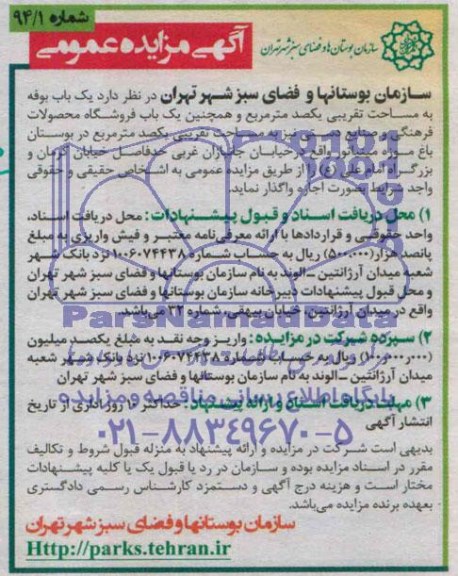 شماره ۹۴/۱
آگهی مزایده عمومی
سازمان بوستانها و فضای سبز شهر تهران
سازمان بوستانها و فضای سبز شهر تهران در نظر دارد یک باب بوفه
به مساحت تقریبی یکصد مترمربع و همچنین یک باب فروشگاه محصولات
فرهنگی و صنایع دستی نیز به مساحت تقریبی یکصد مترمربع در بوستان
باغ موزه واقع در خیابان جانبازان غربی حدفاصل خیابان کرمان و
بزرگراه امام علی (ع) را از طریق مزایده عمومی به اشخاص حقیقی و حقوقی
واجد شرایط بصورت اجاره واگذار نماید.
۱) محل دریافت اسناد و قبول پیشنهادات: محل دریافت اسناد،
واحد حقوقی و قراردادها با ارائه معرفی‌نامه معتبر و فیش واریزی به مبلغ
پانصد هزار (۵۰۰،۰۰۰) ریال به حساب شماره ۱۰۰۶۰۷۴۴۳۸ نزد بانک شهر
شعبه میدان آرژانتین ـ الوند به نام سازمان بوستانها و فضای سبز شهر تهران
و محل قبول پیشنهادات دبیرخانه سازمان بوستانها و فضای سبز شهر تهران
واقع در میدان آرژانتین، خیابان بیهقی، شماره ۳۲ می‌باشد.
ParsNamadData
۲) سپرده شرکت در مزایده: واریز وجه نقد به مبلغ یکصد میلیون
(۱۰۰،۰۰۰،۰۰۰) ریال به حساب شماره ۱۰۰۶۰۷۴۴۳۸ نزد بانک شهر شعبه
میدان آرژانتین ـ الوند به نام سازمان بوستانها و فضای سبز شهر تهران
پایگاه اطلاع رسانی مناقصه و مزایده
۳) مهلت دریافت اسناد و ارائه پیشنهاد: حداکثر ۱۰ روز اداری از تاریخ
انتشار آگهی
۰۲۱-۸۸۳۴۹۶۷۰-۵
بدیهی است شرکت در مزایده و ارائه پیشنهاد به منزله قبول شروط و تکالیف
مقرر در اسناد مزایده بوده و سازمان در رد یا قبول یک یا کلیه پیشنهادات
مختار است و هزینه درج آگهی و دستمزد کارشناس رسمی دادگستری
بعهده برنده مزایده می‌باشد.
سازمان بوستانها و فضای سبز شهر تهران
Http://parks.tehran.ir